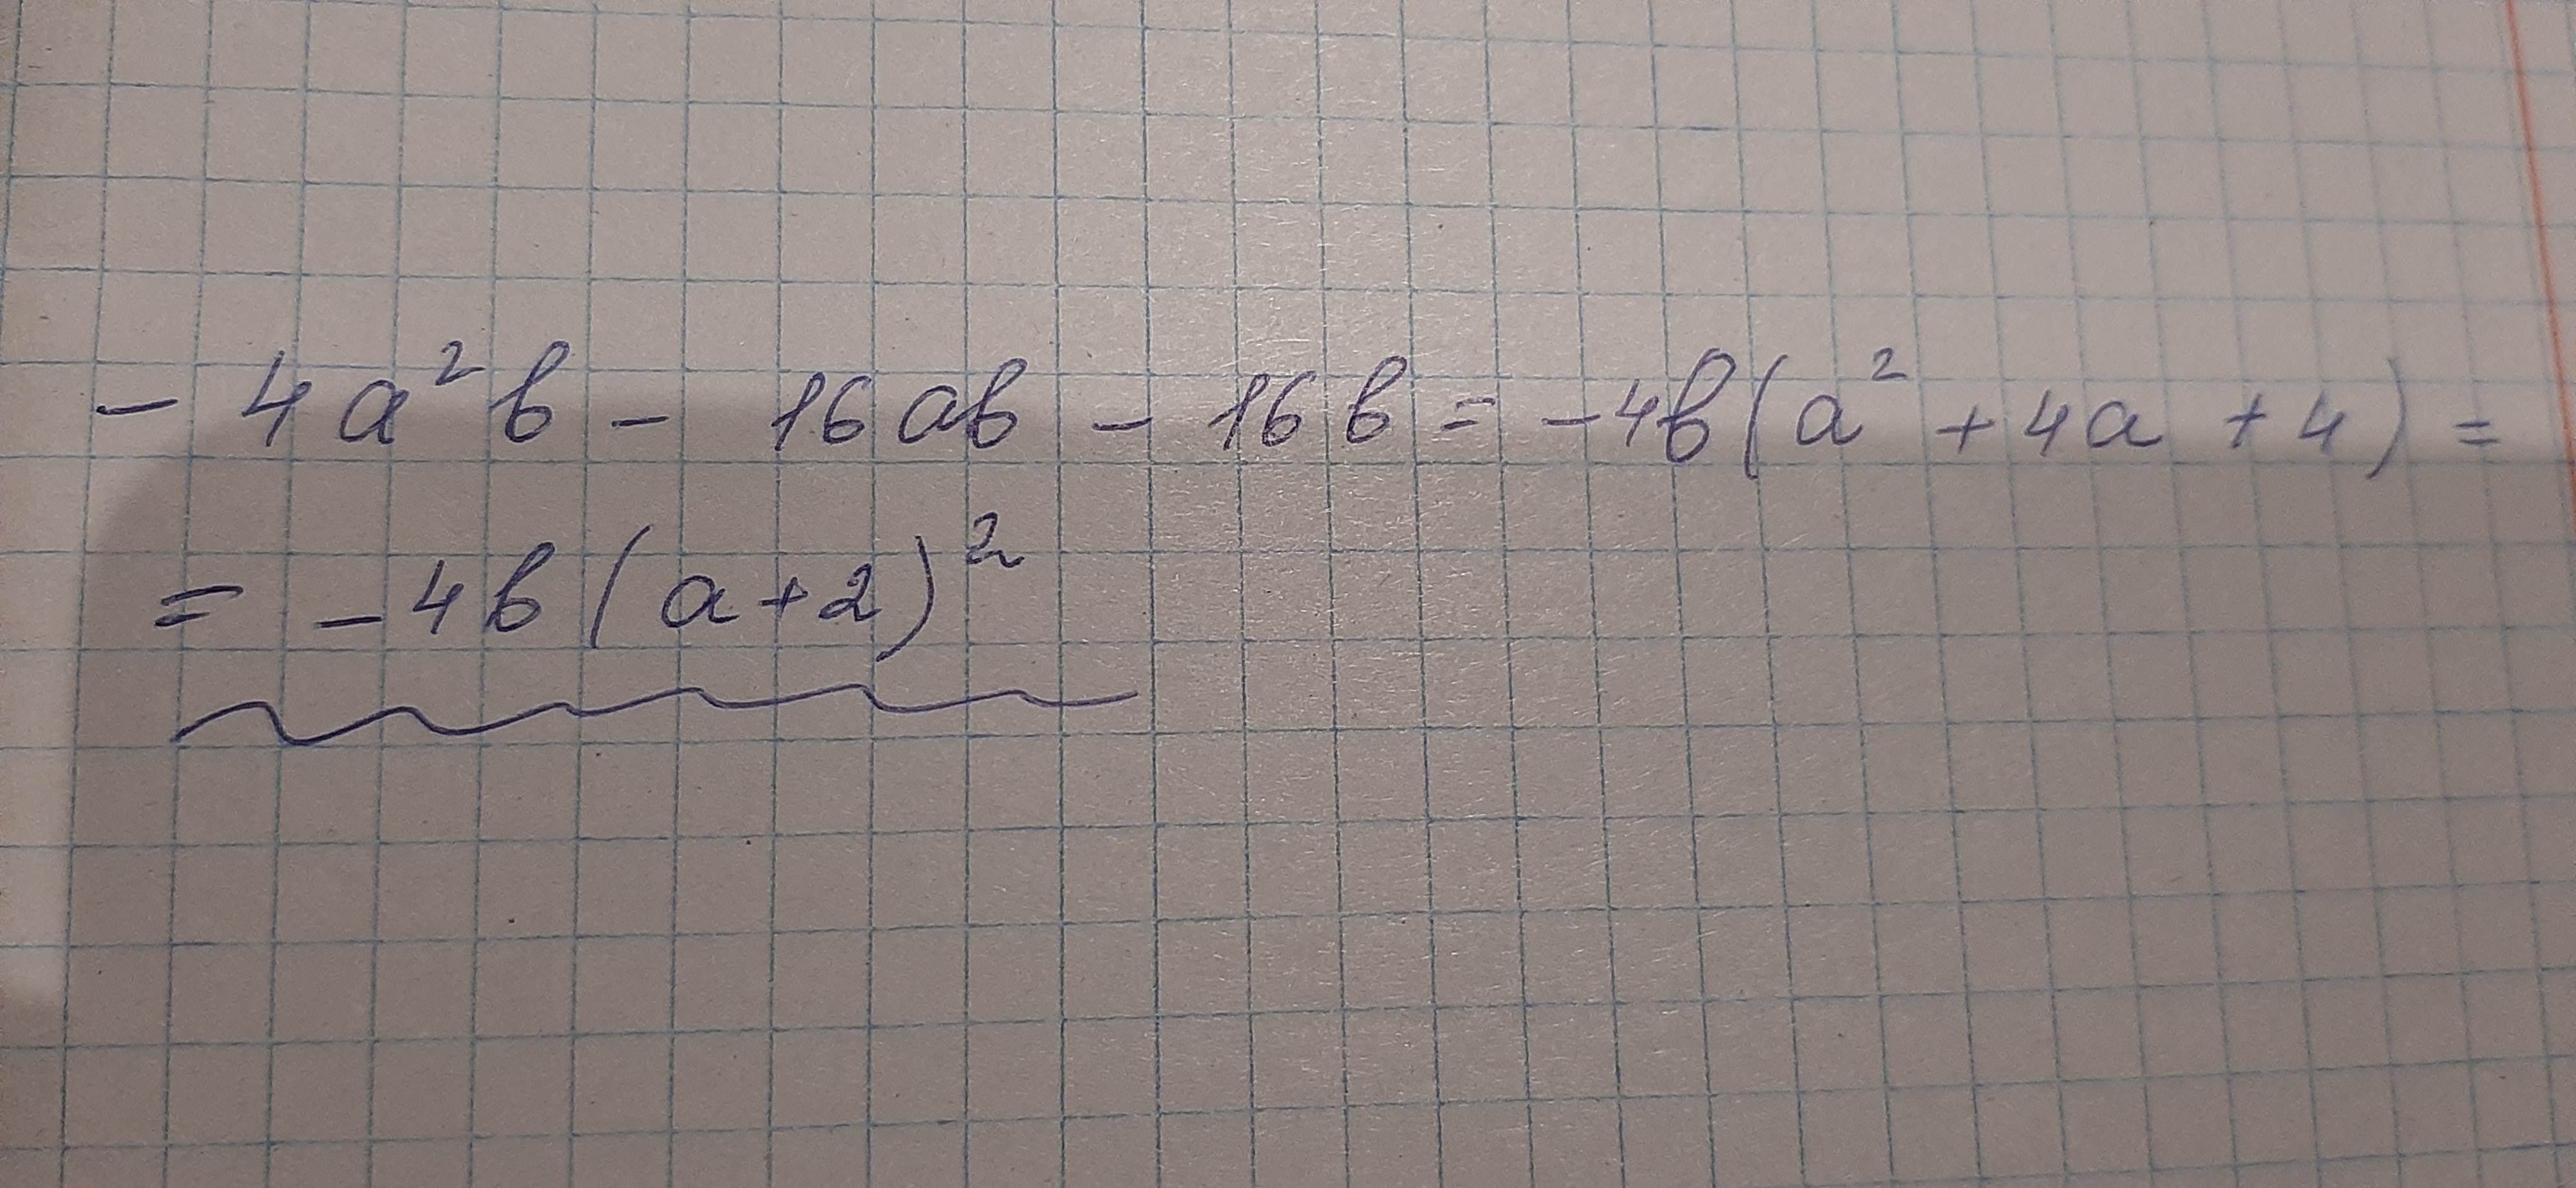 - 4a²b - 16ab - 16b = -4b(a² + 4a + 4) =
= -4b(a+2)²